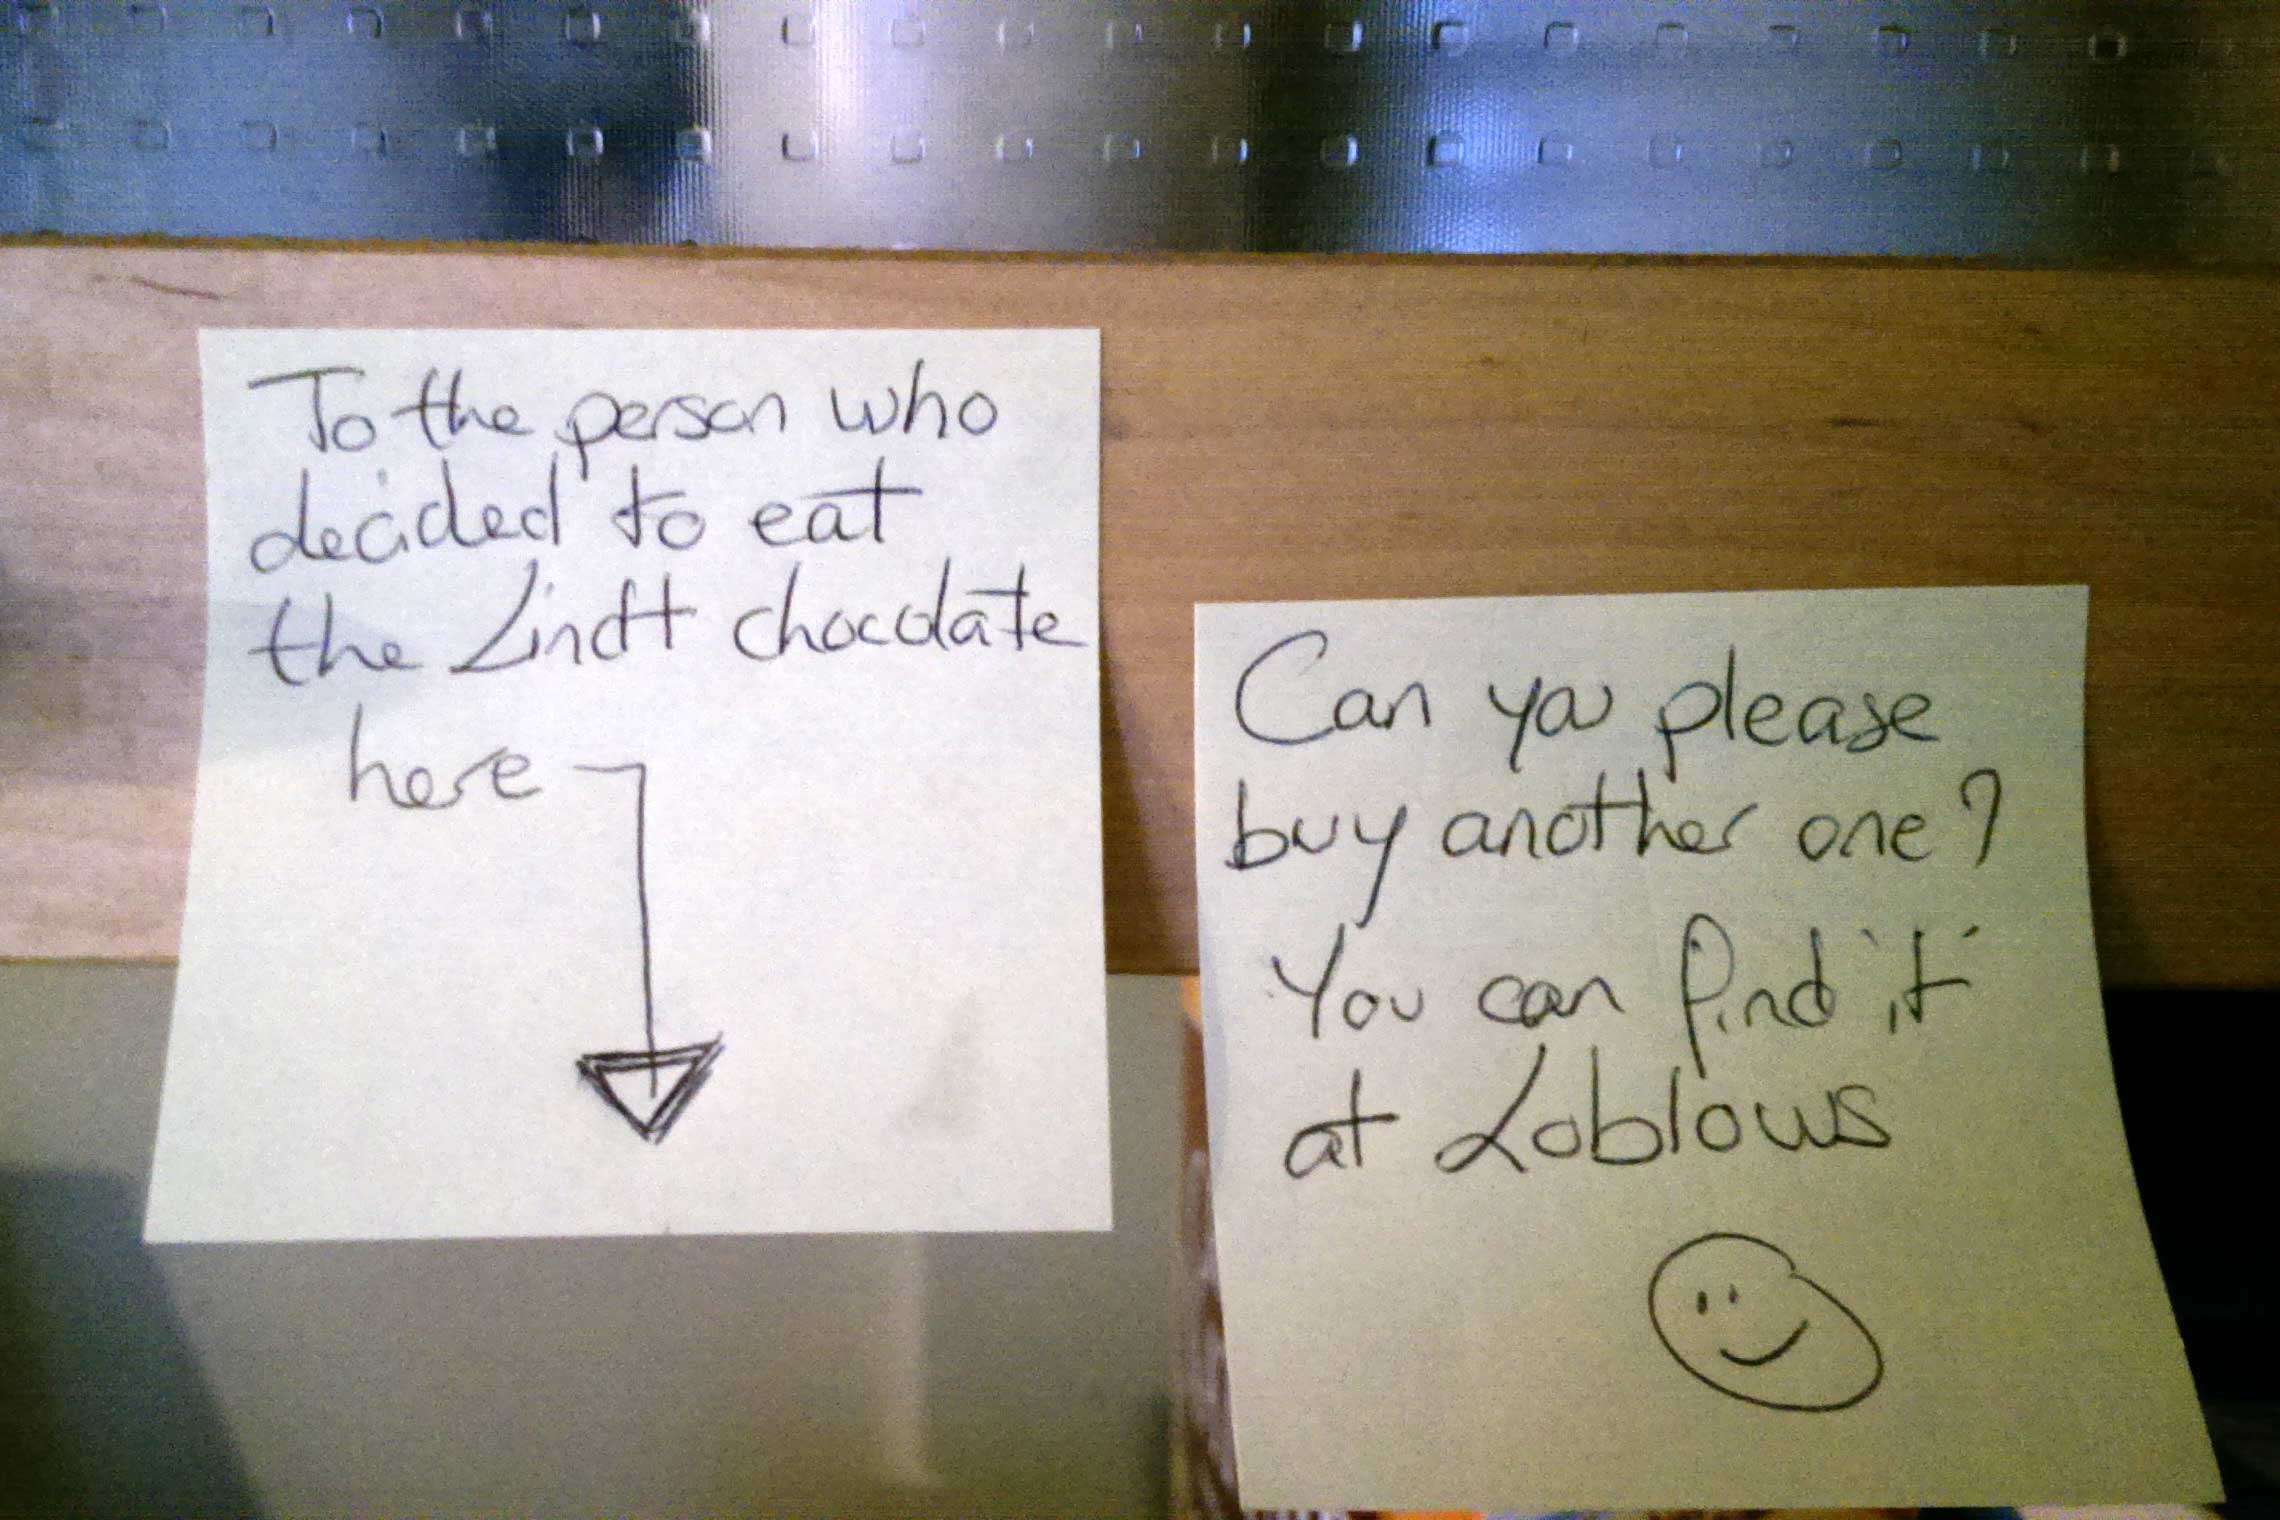 To the person who
decided to eat
the Lindt chocolate
here
Can you please
buy another one?
You can find it
at Loblows